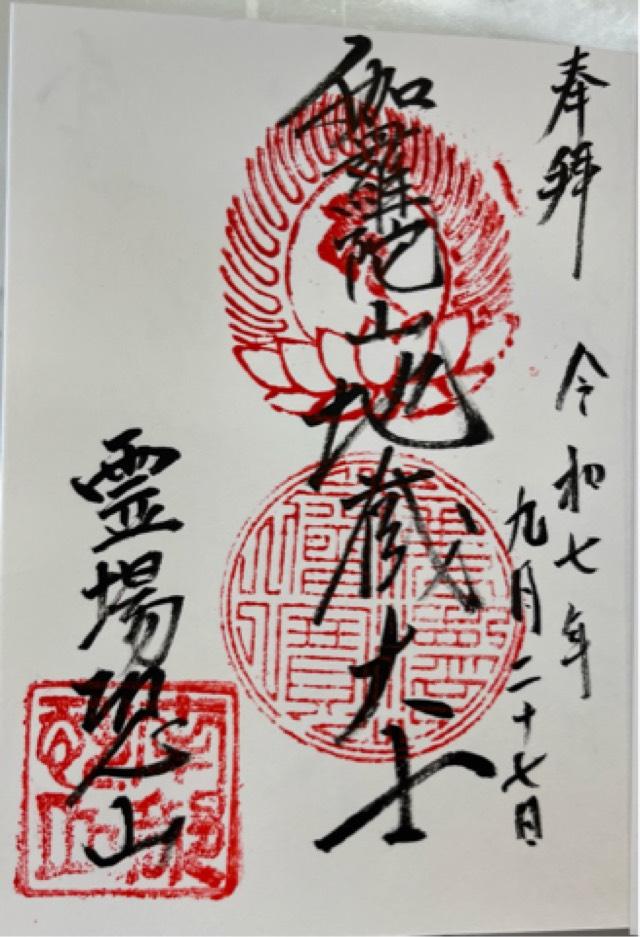 奉拝
令和七年
九月二十七日
伽羅陀山地蔵大士
霊場恐山